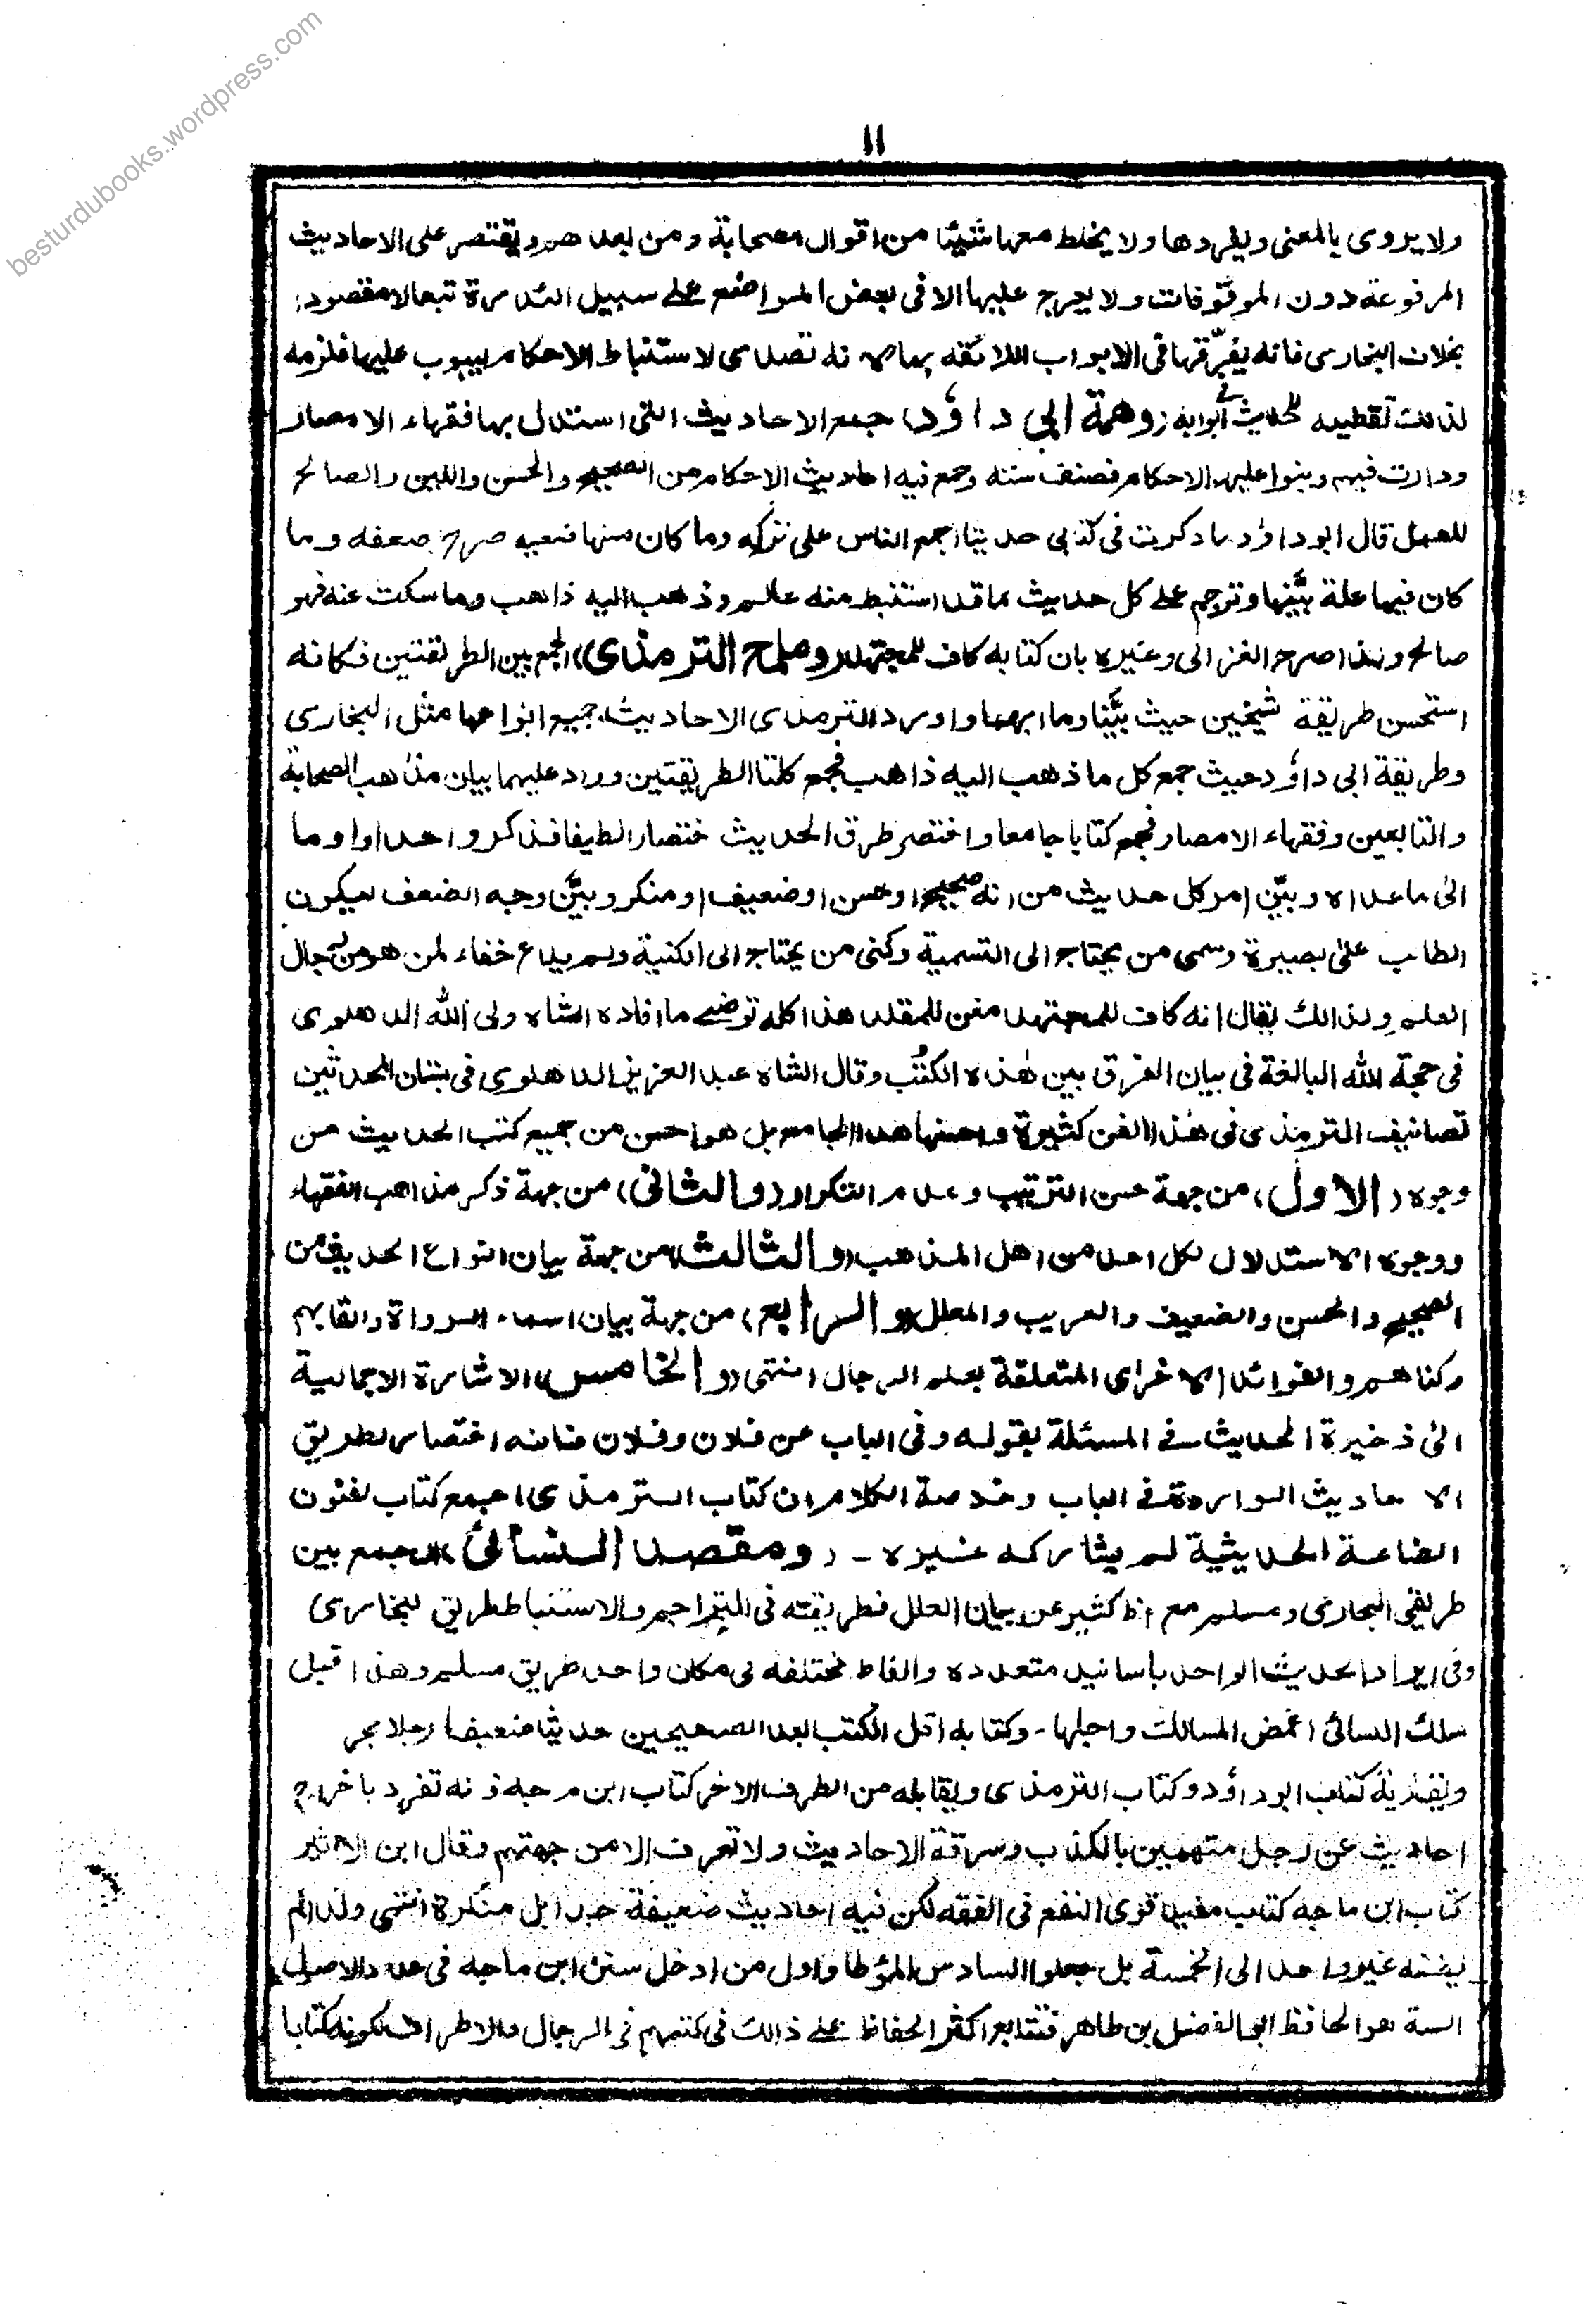 besturdubooks.wordpress.com
١١
ولا يروى بالمعنى ويفردها ولا يخلط معها شيئا من اقوال صحابة ومن بعد هم ويقتصر على الاحاديث
المرفوعة دون الموقوفات ولا يعرج عليها الا فى بعض المواضع على سبيل الندرة تبعا لا مقصودا
بخلاف البخارى فانه يفرّقها فى الابواب اللائقه بها لانه تصدى لاستنباط الاحكام ليبوب عليها فلزمه
لذلك تقطيعه للحديث فى ابوابه (وهمة ابى داؤد) جمع الاحاديث التى استدل بها فقهاء الامصار
ودارت فيهم وبنوا عليها الاحكام فصنف سننه وجمع فيه احاديث الاحكام من الصحيح والحسن واللين والصالح
للعمل قال ابو داؤد ما ذكرت فى كتابى حديثا اجمع الناس على تركه وما كان منها ضعيف صرح بضعفه وما
كان فيها علة بيّنها وترجم على كل حديث بما قد استنبط منه عالم وذهب اليه ذاهب وما سكت عنه فهو
صالح ولذا صرح الغزالى وغيره بان كتابه كاف للمجتهد (وملمح الترمذى) الجمع بين الطريقتين فكانه
استحسن طريقة شيخين حيث بيّنا وما ابهما واورد الترمذى الاحاديث بجميع انواعها مثل البخارى
وطريقة ابى داؤد حيث جمع كل ما ذهب اليه ذاهب فجمع كلتا الطريقتين وزاد عليهما بيان مذاهب الصحابة
والتابعين وفقهاء الامصار فجمع كتابا جامعا واختصر طرق الحديث ختصارا لطيفا فذكر واحدا واوما
الى ما عداه وبيّن امر كل حديث من انه صحيح او حسن او ضعيف او منكر وبيّن وجه الضعف ليكون
الطالب على بصيرة وسمى من يحتاج الى التسمية وكنى من يحتاج الى الكنية ولم يدع خفاء لمن هو من رجال
العلم ولذالك يقال انه كاف للمجتهد مغن للمقلد هذا كله توضيح ما افاده الشاه ولى الله الدهلوى
فى حجة الله البالغة فى بيان الفرق بين هذه الكتب وقال الشاه عبد العزيز الدهلوى فى بستان المحدثين
تصانيف الترمذى فى هذا الفن كثيرة واحسنها هذا الجامع بل هو احسن من جميع كتب الحديث من
وجوه (الاول) من جهة حسن الترتيب وعدم التكرار (والثانى) من جهة ذكر مذاهب الفقهاء
ووجوه الاستدلال لكل احد من اهل المذهب (والثالث) من جهة بيان انواع الحديث من
الصحيح والحسن والضعيف والغريب والمعلل (والرابع) من جهة بيان اسماء الرواة والقابهم
وكناهم والفوائد الاخراى المتعلقة بعلم الرجال انتهى (والخامس) الاشارة الاجمالية
الى ذخيرة الحديث فى المسئلة بقوله وفى الباب عن فلان وفلان فانه اختصار لطريق
الاحاديث الواردة فى الباب وخلاصة الكلام ان كتاب الترمذى اجمع كتاب لفنون
الصناعة الحديثية لم يشاركه غيره - (ومقصد النسائى) الجمع بين
طريقى البخارى ومسلم مع حظ كثير عن بيان العلل فطريقته فى التراجم والاستنباط طريق البخارى
وفى ايراد الحديث الواحد باسانيد متعدده والفاظ مختلفه فى مكان واحد طريق مسلم وهذا قيل
سلك النسائى اغمض المسالك واجلها - وكتابه اقل الكتب بعد الصحيحين حديثا ضعيفا رجلا مجر
كتاب ابو داؤد وكتاب الترمذى ويقابله من الطرف الاخر كتاب ابن مرجه فانه تفرد باخراج
احاديث عن رجل متهمين بالكذب وسرقة الاحاديث ولا تعرف الا من جهتهم وقال ابن الاثير
كتاب ابن ماجه كتاب مفيد قوى النفع فى الفقه لكن فيه احاديث ضعيفة جدا بل منكرة انتهى ولذا لم
يضفه غير واحد الى الخمسة بل جعلوا السادس المؤطا واول من ادخل سنن ابن ماجه فى عداد الاصول
الستة هو الحافظ ابو الفضل بن طاهر فتتابع اكثر الحفاظ على ذالك فى كتبهم فى الرجال والاطراف لكونه كتابا